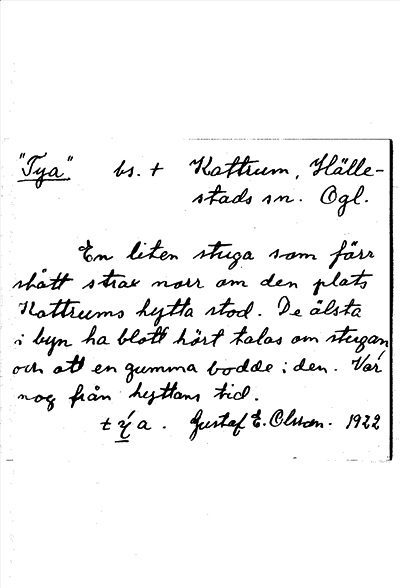 "Tya" bs. † Kattrum, Hälle-
stads sn. Ögl.
En liten stuga som förr
stått strax norr om den plats
Kattrums hytta stod. De älsta
i byn ha blott hört talas om stugan
och att en gumma bodde i den. Var
nog från hyttans tid.
týa. Gustaf E. Olsson. 1922